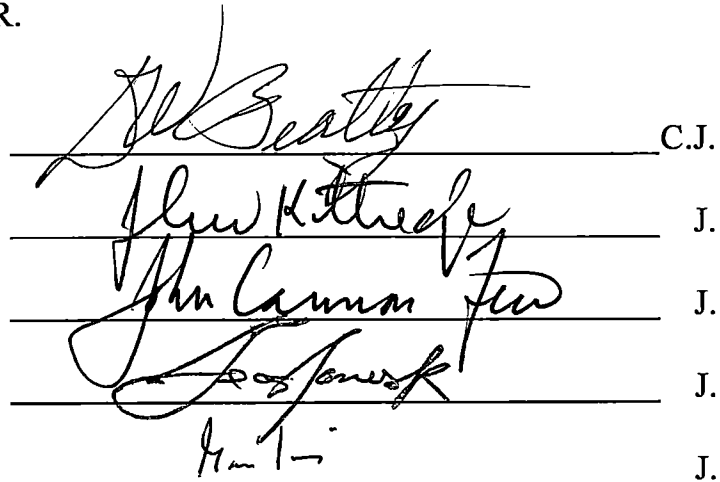 R.
DW Beatty C.J.
John Kittredge J.
John Cannon Few J.
J.
J.